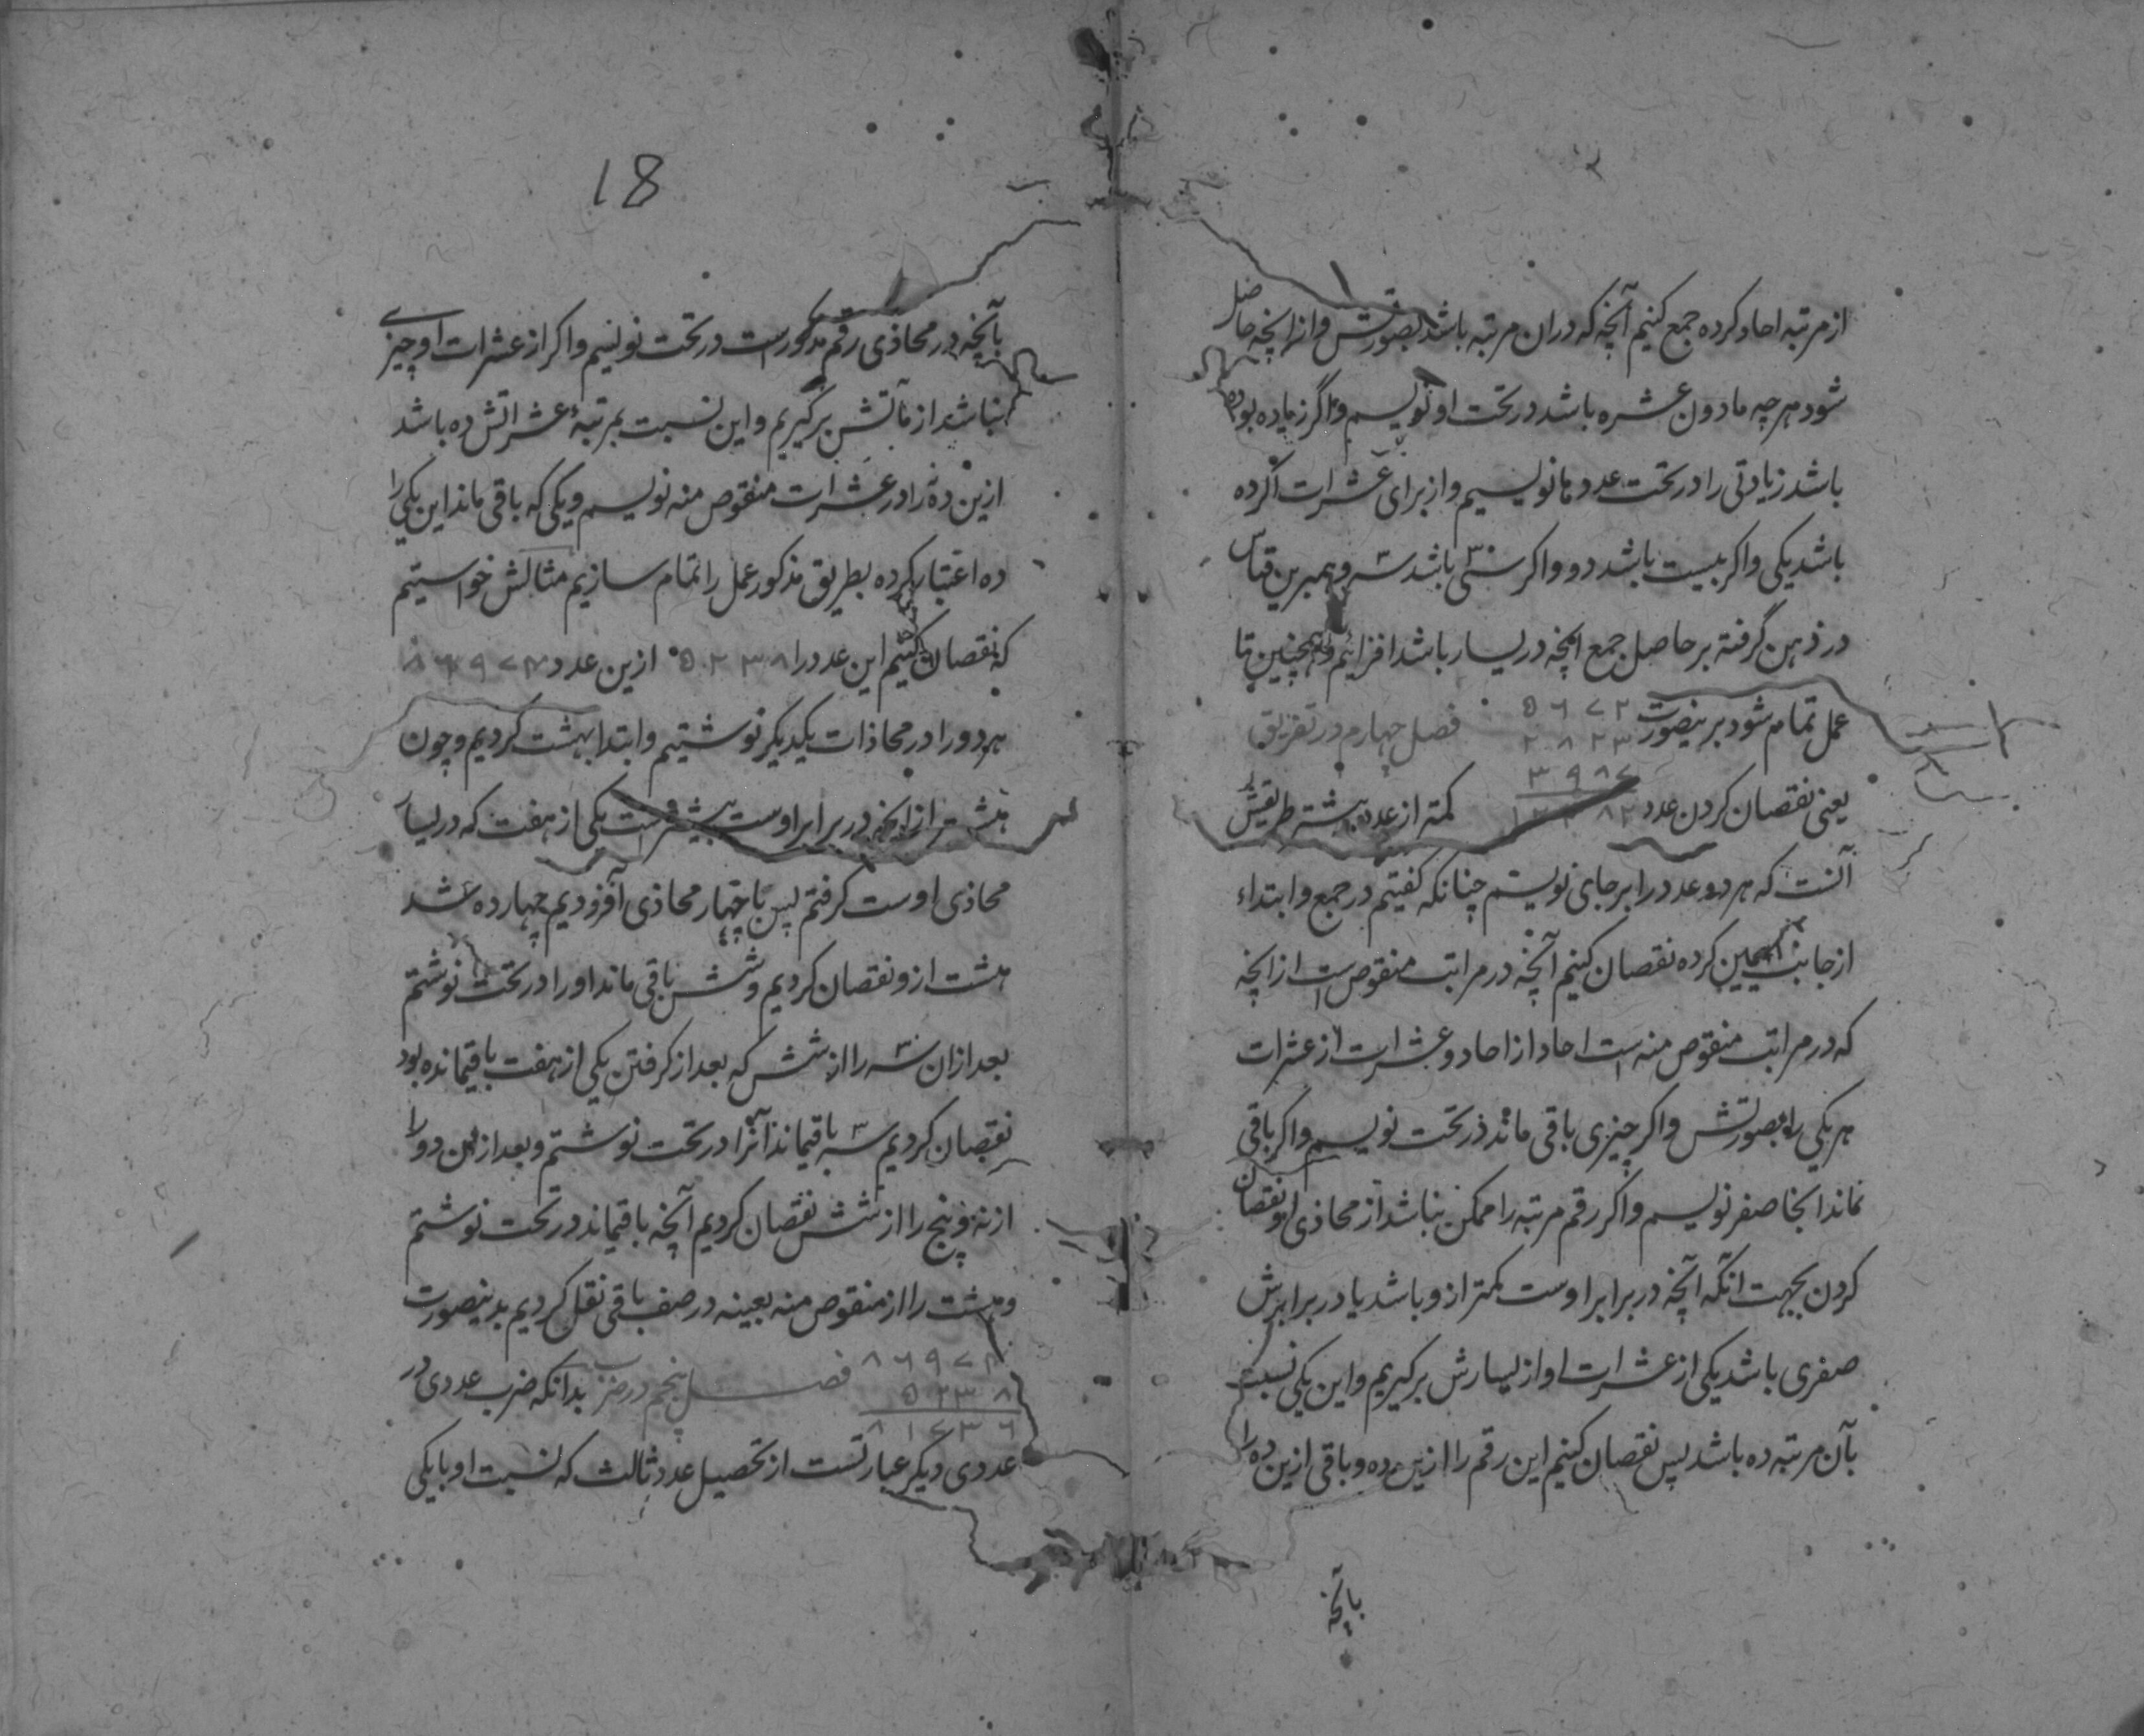 از مرتبه احاد کرده جمع کنیم آنچه که دران مرتبه باشد بصورتش و از انچه حاصل
شود هرچه مادون عشره باشد در تحت او نویسیم و اگر زیاده بوده
باشد زیادتی را در تحت عدد ما نویسیم و از برای عشرات اگر ده
باشد یکی و اکر بیست باشد دو و اکر سی باشد سه و همبرین قیاس
در ذهن گرفته بر حاصل جمع انچه در یسار باشد افزائیم و همچنین تا
عمل تمام شود برینصورت فصل چهارم در تفریق
یعنی نقصان کردن عدد کمتر از عدد بیشتر طریقش
آنست که هر دو عدد را بر جای نویسیم چنانکه کفتیم در جمع و ابتداء
از جانب یمین کرده نقصان کنیم آنچه در مراتب منقوص است از انچه
که در مراتب منقوص منه است احاد از احاد و عشرات از عشرات
هر یکی را بصورتش و اکر چیزی باقی ماند در تحت نویسیم و اکر باقی
نماند انجا صفر نویسیم و اکر رقم مرتبه را ممکن نباشد از محاذی او نقصان
کردن بجهت انکه آنچه در برابر اوست کمتر از و باشد یا در برابرش
صفری باشد یکی از عشرات او از یسارش برکیریم و این یکی نسبت
بآن مرتبه ده باشد پس نقصان کنیم این رقم را ازین ده و باقی ازین ده را
بانچه
18
بآنچه در محاذی رقم مذکورست در تحت نویسیم و اکر از عشرات او چیزی
نباشد از مآتش برگیریم و این نسبت بمرتبهٔ عشراتش ده باشد
ازین ده نه را در عشرات منقوص منه نویسیم و یکی که باقی ماند این یکی را
ده اعتبار کرده بطریق مذکور عمل را تمام سازیم مثالش خواستیم
که نقصان کنیم این عدد را ۵۲۳۸ ازین عدد ۸۶۹۷۴
هر دو را در محاذات یکدیکر نوشتیم و ابتدا بهشت کردیم و چون
هشت از انچه در برابر اوست بیشترست یکی از هفت که در یسار
محاذی اوست کرفتیم پس با چهار محاذی افزودیم چهارده شد
هشت از و نقصان کردیم و شش باقی ماند او را در تحت نوشتیم
بعد ازان سه را از شش که بعد از کرفتن یکی از هفت باقیمانده بود
نقصان کردیم سه باقیماند آنرا در تحت نوشتیم و بعد ازان دو را
از نه و پنج را از شش نقصان کردیم آنچه باقیماند در تحت نوشتیم
و هشت را از منقوص منه بعینه در صف باقی نقل کردیم بدینصورت
۸۶۹۷۴ فصل پنجم در ضرب بدانکه ضرب عددی در
۵۲۳۸
۸۱۷۳۶
عددی دیکر عبارتست از تحصیل عدد ثالث که نسبت او با یکی